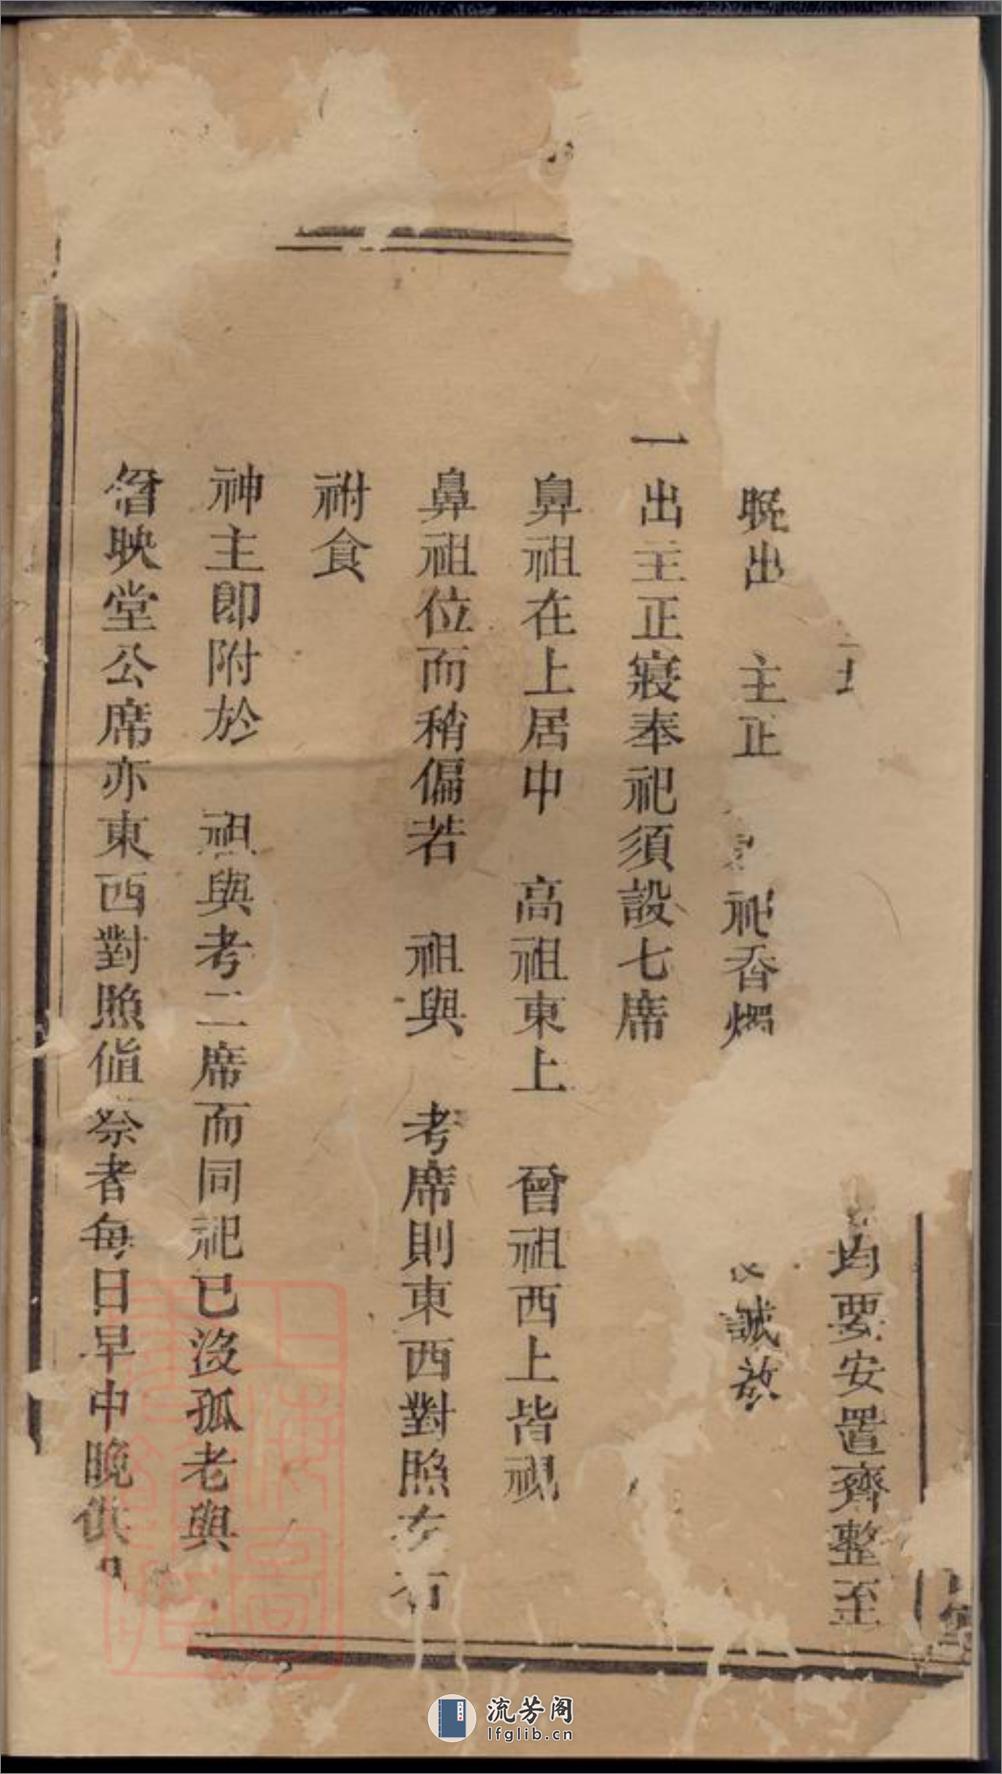 均要安置齊整至
晚出 主正 祀香燭 誠敬
一出主正寢奉祀須設七席
鼻祖在上居中 高祖東上 曾祖西上皆視
鼻祖位而稍偏若 祖與 考席則東西對照左右
祔食
神主即附於 祖與考二席而同祀已沒孤老與
映堂公席亦東西對照值祭者每日早中晚供
流芳阁
lfglib.cn